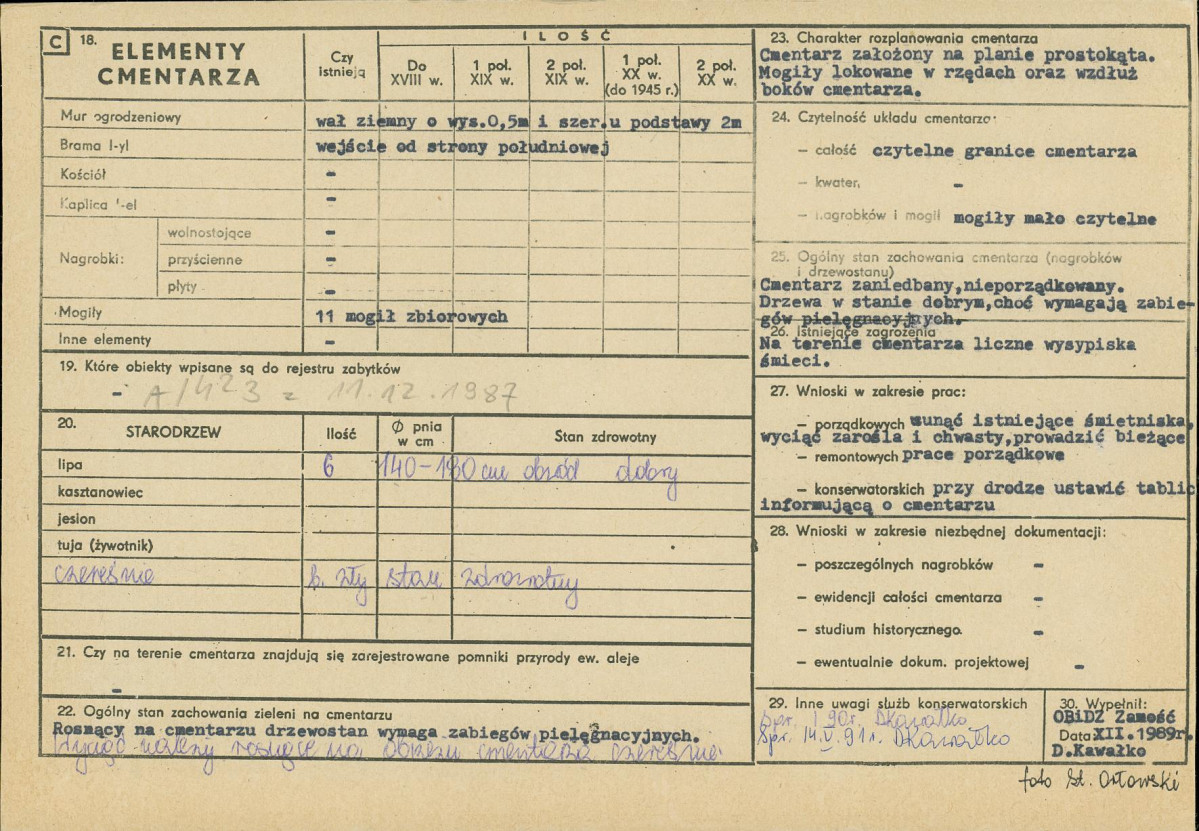 C 18. ELEMENTY CMENTARZA
Czy istnieją
ILOŚĆ
Do XVIII w.
1 poł. XIX w.
2 poł. XIX w.
1 poł. XX w. (do 1945 r.)
2 poł. XX w.
Mur ogrodzeniowy wał ziemny o wys.0,5m i szer.u podstawy 2m
Brama I-yl wejście od strony południowej
Kościół -
Kaplica -el -
Nagrobki:
wolnostojące -
przyścienne -
płyty -
Mogiły 11 mogił zbiorowych
Inne elementy -
19. Które obiekty wpisane są do rejestru zabytków
- A/423 z 11.12.1987
20. STARODRZEW Ilość Ø pnia w cm Stan zdrowotny
lipa 6 140-180 cm obwód dobry
kasztanowiec
jesion
tuja (żywotnik)
czereśnie b. zły stan zdrowotny
21. Czy na terenie cmentarza znajdują się zarejestrowane pomniki przyrody ew. aleje
-
22. Ogólny stan zachowania zieleni na cmentarzu
Rosnący na cmentarzu drzewostan wymaga zabiegów pielęgnacyjnych.
Wyciąć należy rosnące na obrzeżu cmentarza czereśnie
23. Charakter rozplanowania cmentarza
Cmentarz założony na planie prostokąta.
Mogiły lokowane w rzędach oraz wzdłuż
boków cmentarza.
24. Czytelność układu cmentarza:
— całość czytelne granice cmentarza
— kwater, -
— nagrobków i mogił mogiły mało czytelne
25. Ogólny stan zachowania cmentarza (nagrobków
i drzewostanu)
Cmentarz zaniedbany,nieporządkowany.
Drzewa w stanie dobrym,choć wymagają zabie-
gów pielęgnacyjnych.
26. Istniejące zagrożenia
Na terenie cmentarza liczne wysypiska
śmieci.
27. Wnioski w zakresie prac:
— porządkowych usunąć istniejące śmietniska,
wyciąć zarośla i chwasty,prowadzić bieżące
— remontowych prace porządkowe
— konserwatorskich przy drodze ustawić tablic
informującą o cmentarzu
28. Wnioski w zakresie niezbędnej dokumentacji:
— poszczególnych nagrobków -
— ewidencji całości cmentarza -
— studium historycznego. -
— ewentualnie dokum. projektowej -
29. Inne uwagi służb konserwatorskich
Spr. I 90r. DKawałko
Spr. 14.V.91r. DKawałko
30. Wypełnił:
OBiDZ Zamość
Data XII.1989r.
D.Kawałko
foto St. Orłowski